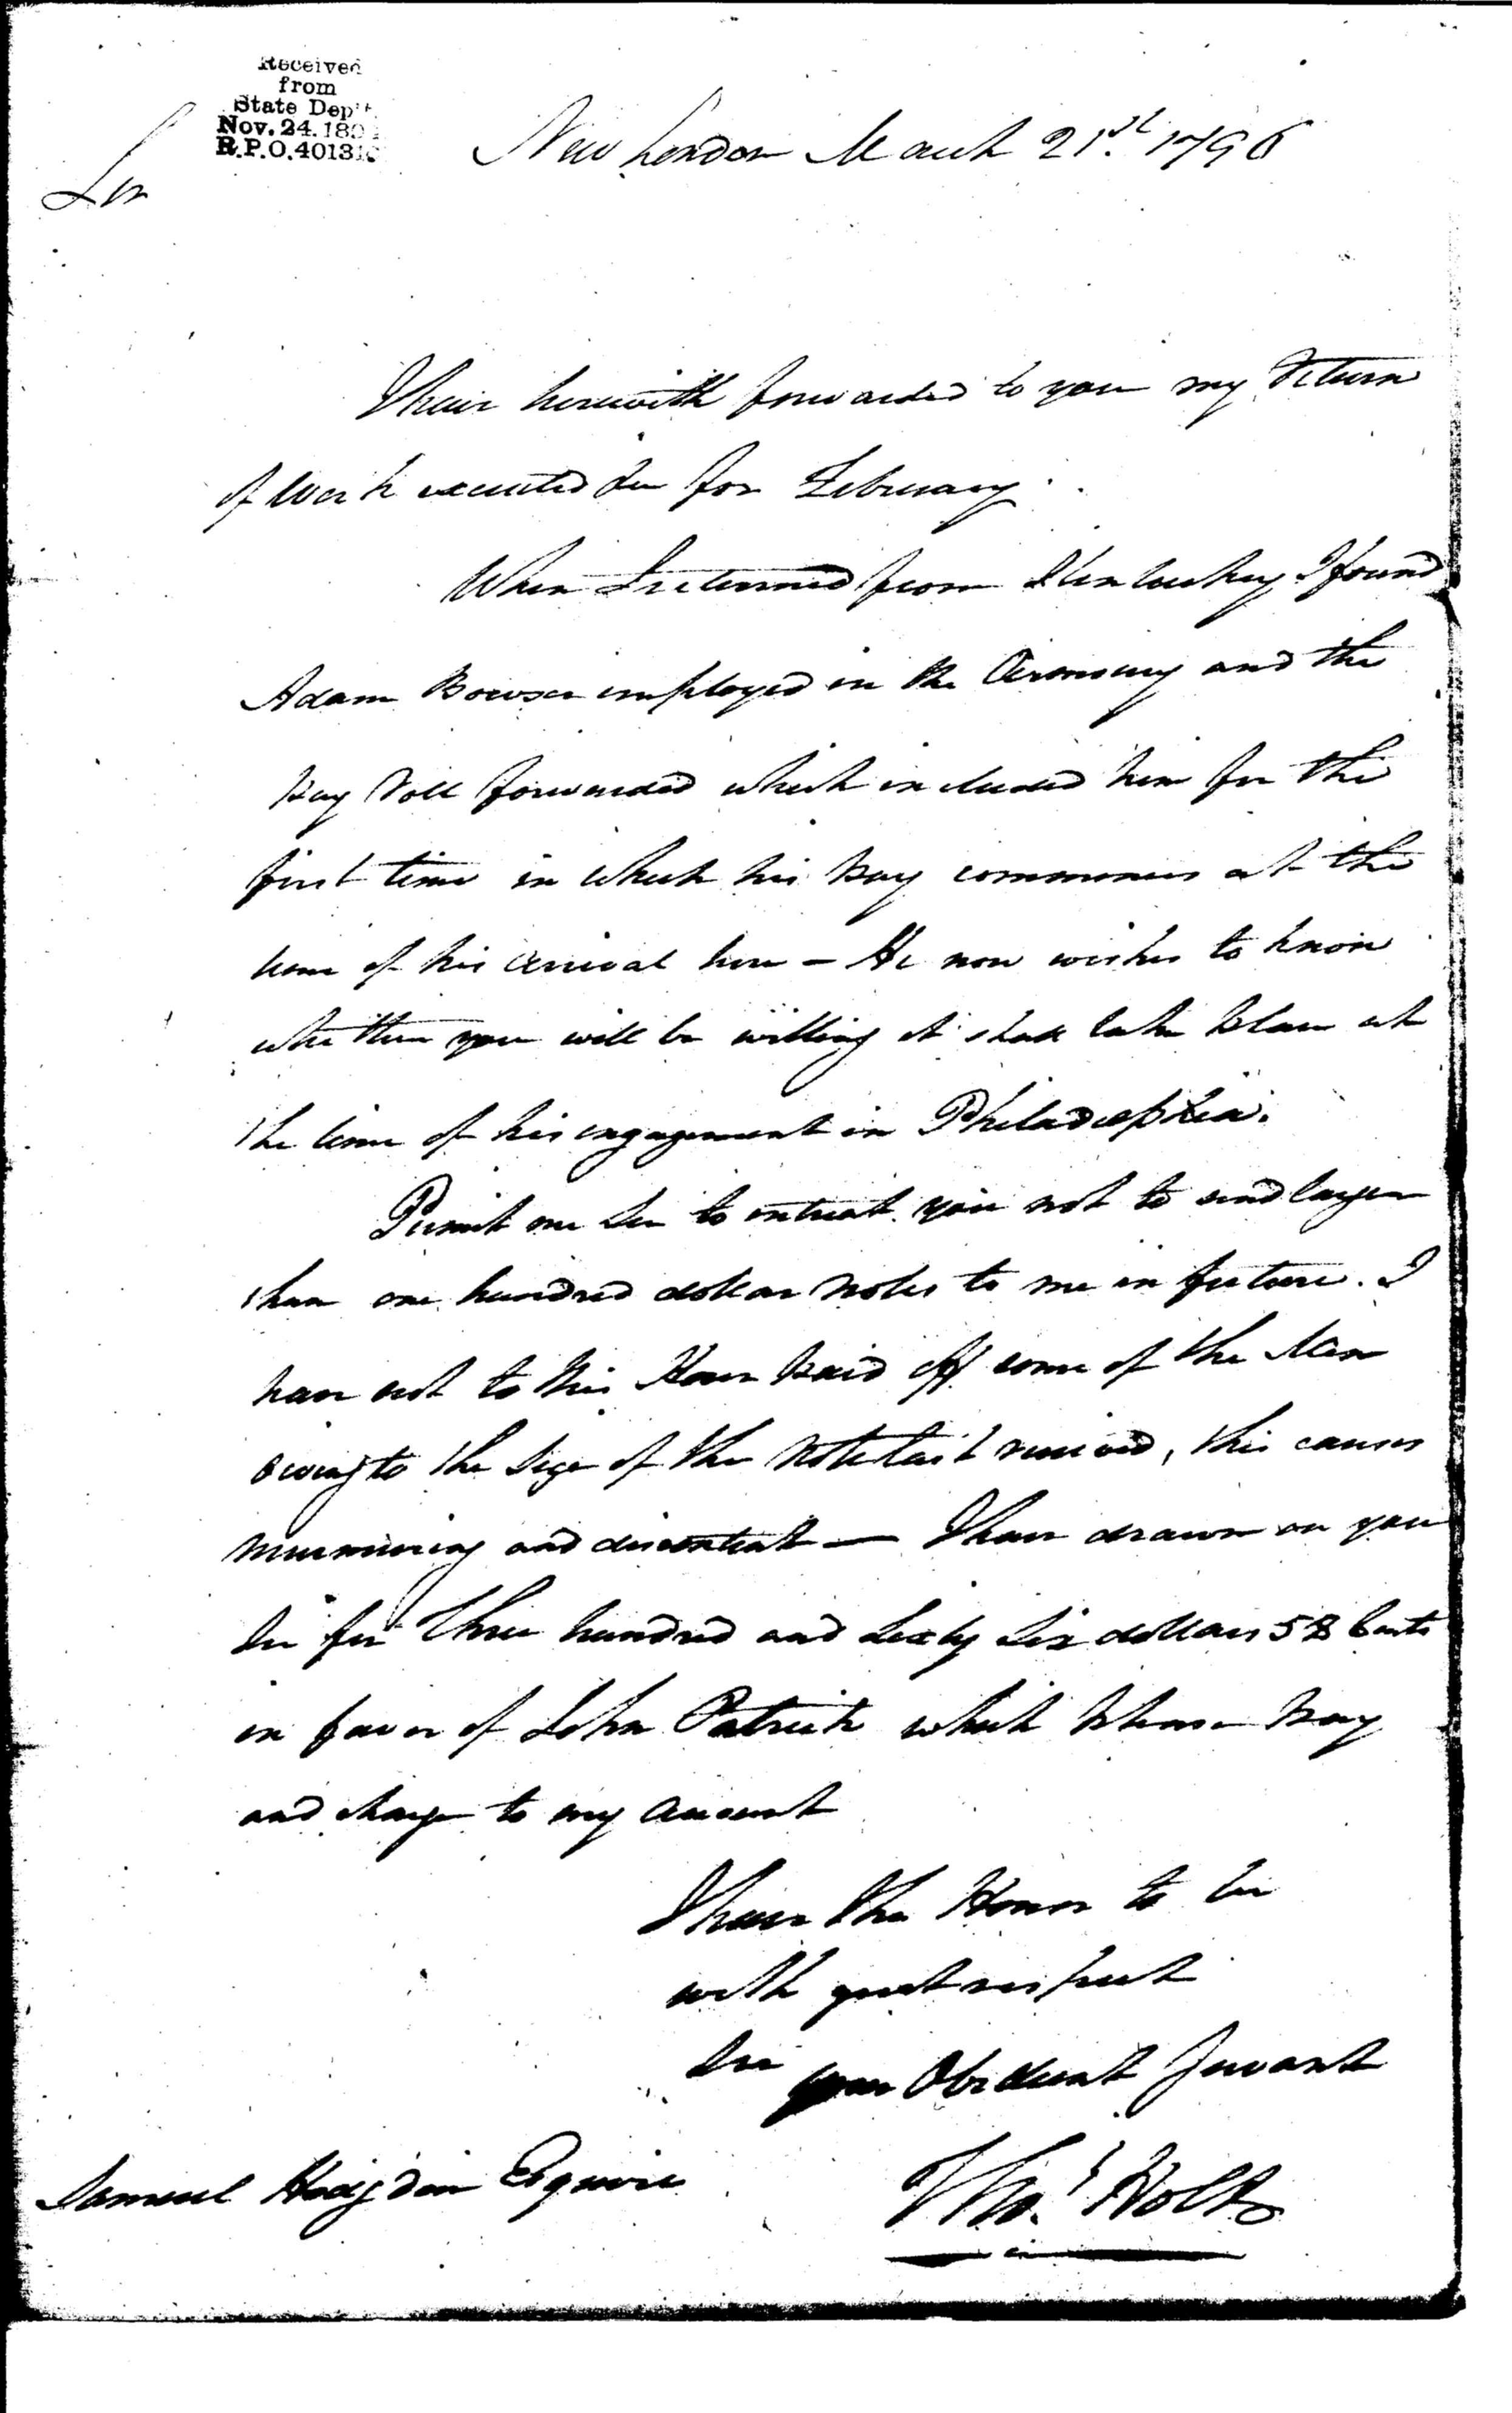 Received
from
State Dep't
Nov. 24. 189
R.P.O. 40131
New London March 21st 1796
Sir
I have herewith forwarded to you my Return
of Work executed Sir for February.
When I returned from Kentuckey I found
Adam Bowser employed in the Armoury and the
pay Roll forwarded which included him for the
first time in which his pay commences at the
time of his arrival here - He now wishes to know
whether you will be willing it shall take place at
the time of his engagement in Philadelphia.
Permit me Sir to entreat you not to send larger
than one hundred dollar notes to me in future. I
have not to this Hour paid off some of the Men
owing to the Size of the Note last received, this causes
murmuring and discontent — I have drawn on you
Sir for three hundred and Sixty Six dollars 58 Cents
in favor of John Patrick which please pay
and charge to my Account
I have the Honor to be
with great respect
Sir your Obedient Servant
Thos Holt
Samuel Hodgdon Esquire